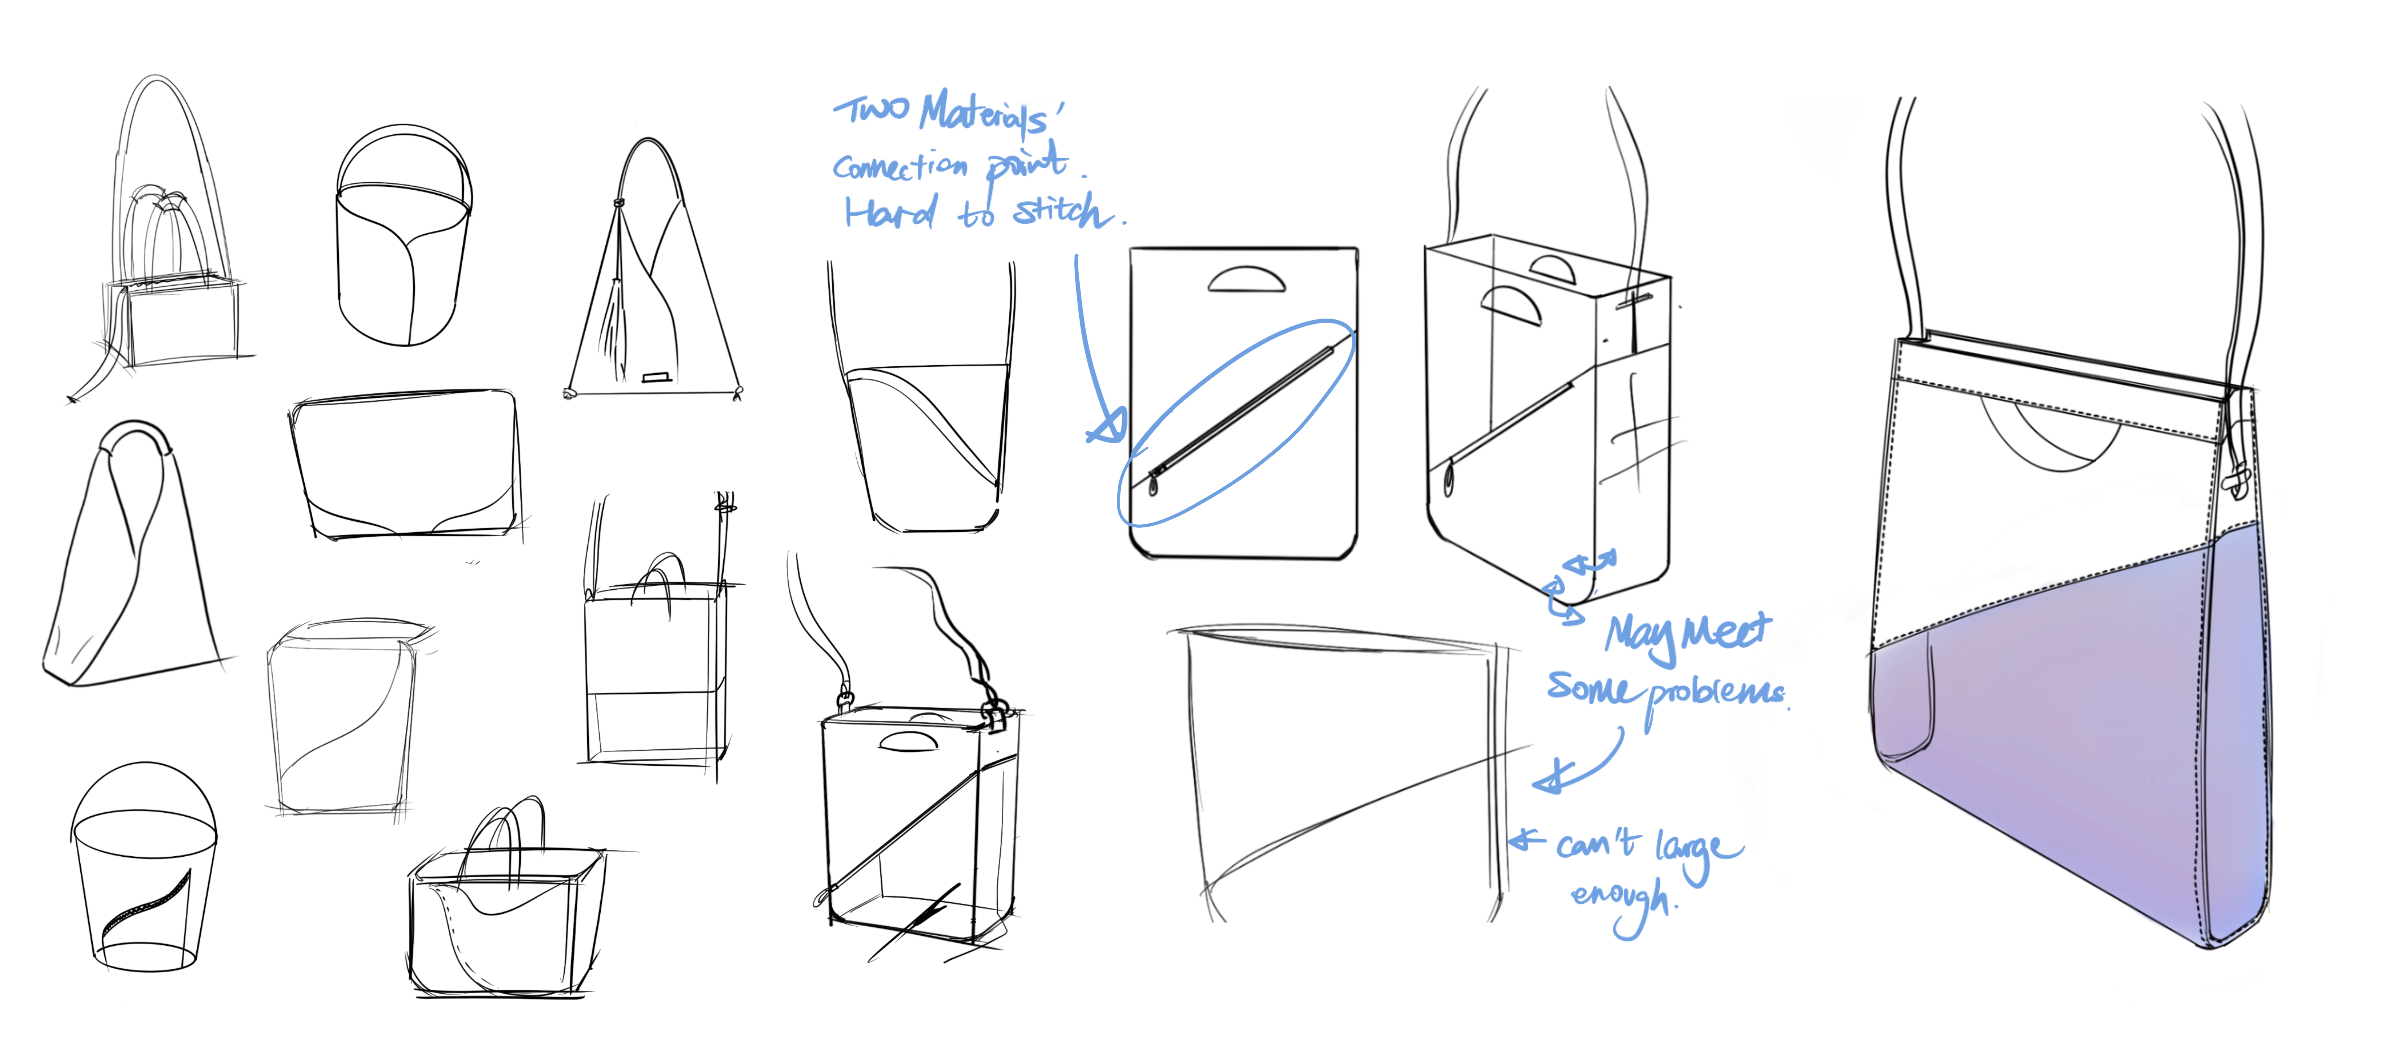 Two Materials'
connection point.
Hard to stitch.
May Meet
Some problems.
can't large
enough.